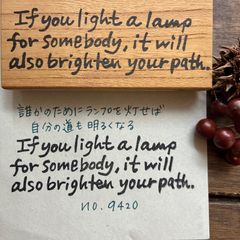 If you light a lamp
for somebody, it will
also brighten your path.
誰かのためにランプを灯せば
自分の道も明るくなる
If you light a lamp
for somebody, it will
also brighten your path.
no. 9420